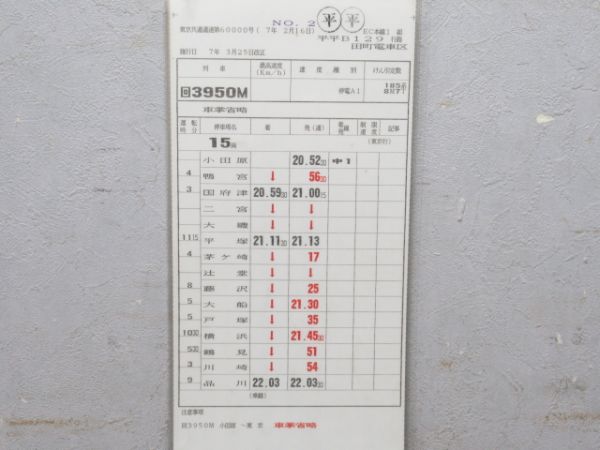 NO. 2 平 平
東京共通運達第60000号( 7年 2月16日) EC本線1 組
平平B129 行路
田町電車区
施行日 7年 3月25日改正
列車 最高速度(Km/h) 速度種別 けん引定数
回3950M 停電A1 185系 8M7T
車掌省略
運転時分 停車場名 着 発(通) 着発線 制限速度 記事
15両 (東京行)
小田原 20.52 00 中1
4 鴨宮 ↓ 56 00
3 国府津 20.59 00 21.00 15
二宮 ↓ ↓
大磯 ↓ ↓
11 15 平塚 21.11 30 21.13
4 茅ヶ崎 ↓ 17
辻堂 ↓ ↓
8 藤沢 ↓ 25
5 大船 ↓ 21.30
5 戸塚 ↓ 35
10 00 横浜 ↓ 21.45 00
5 30 鶴見 ↓ 51
3 川崎 ↓ 54
9 品川 22.03 22.03 30
注意事項
回3950M 小田原 ~東京 車掌省略